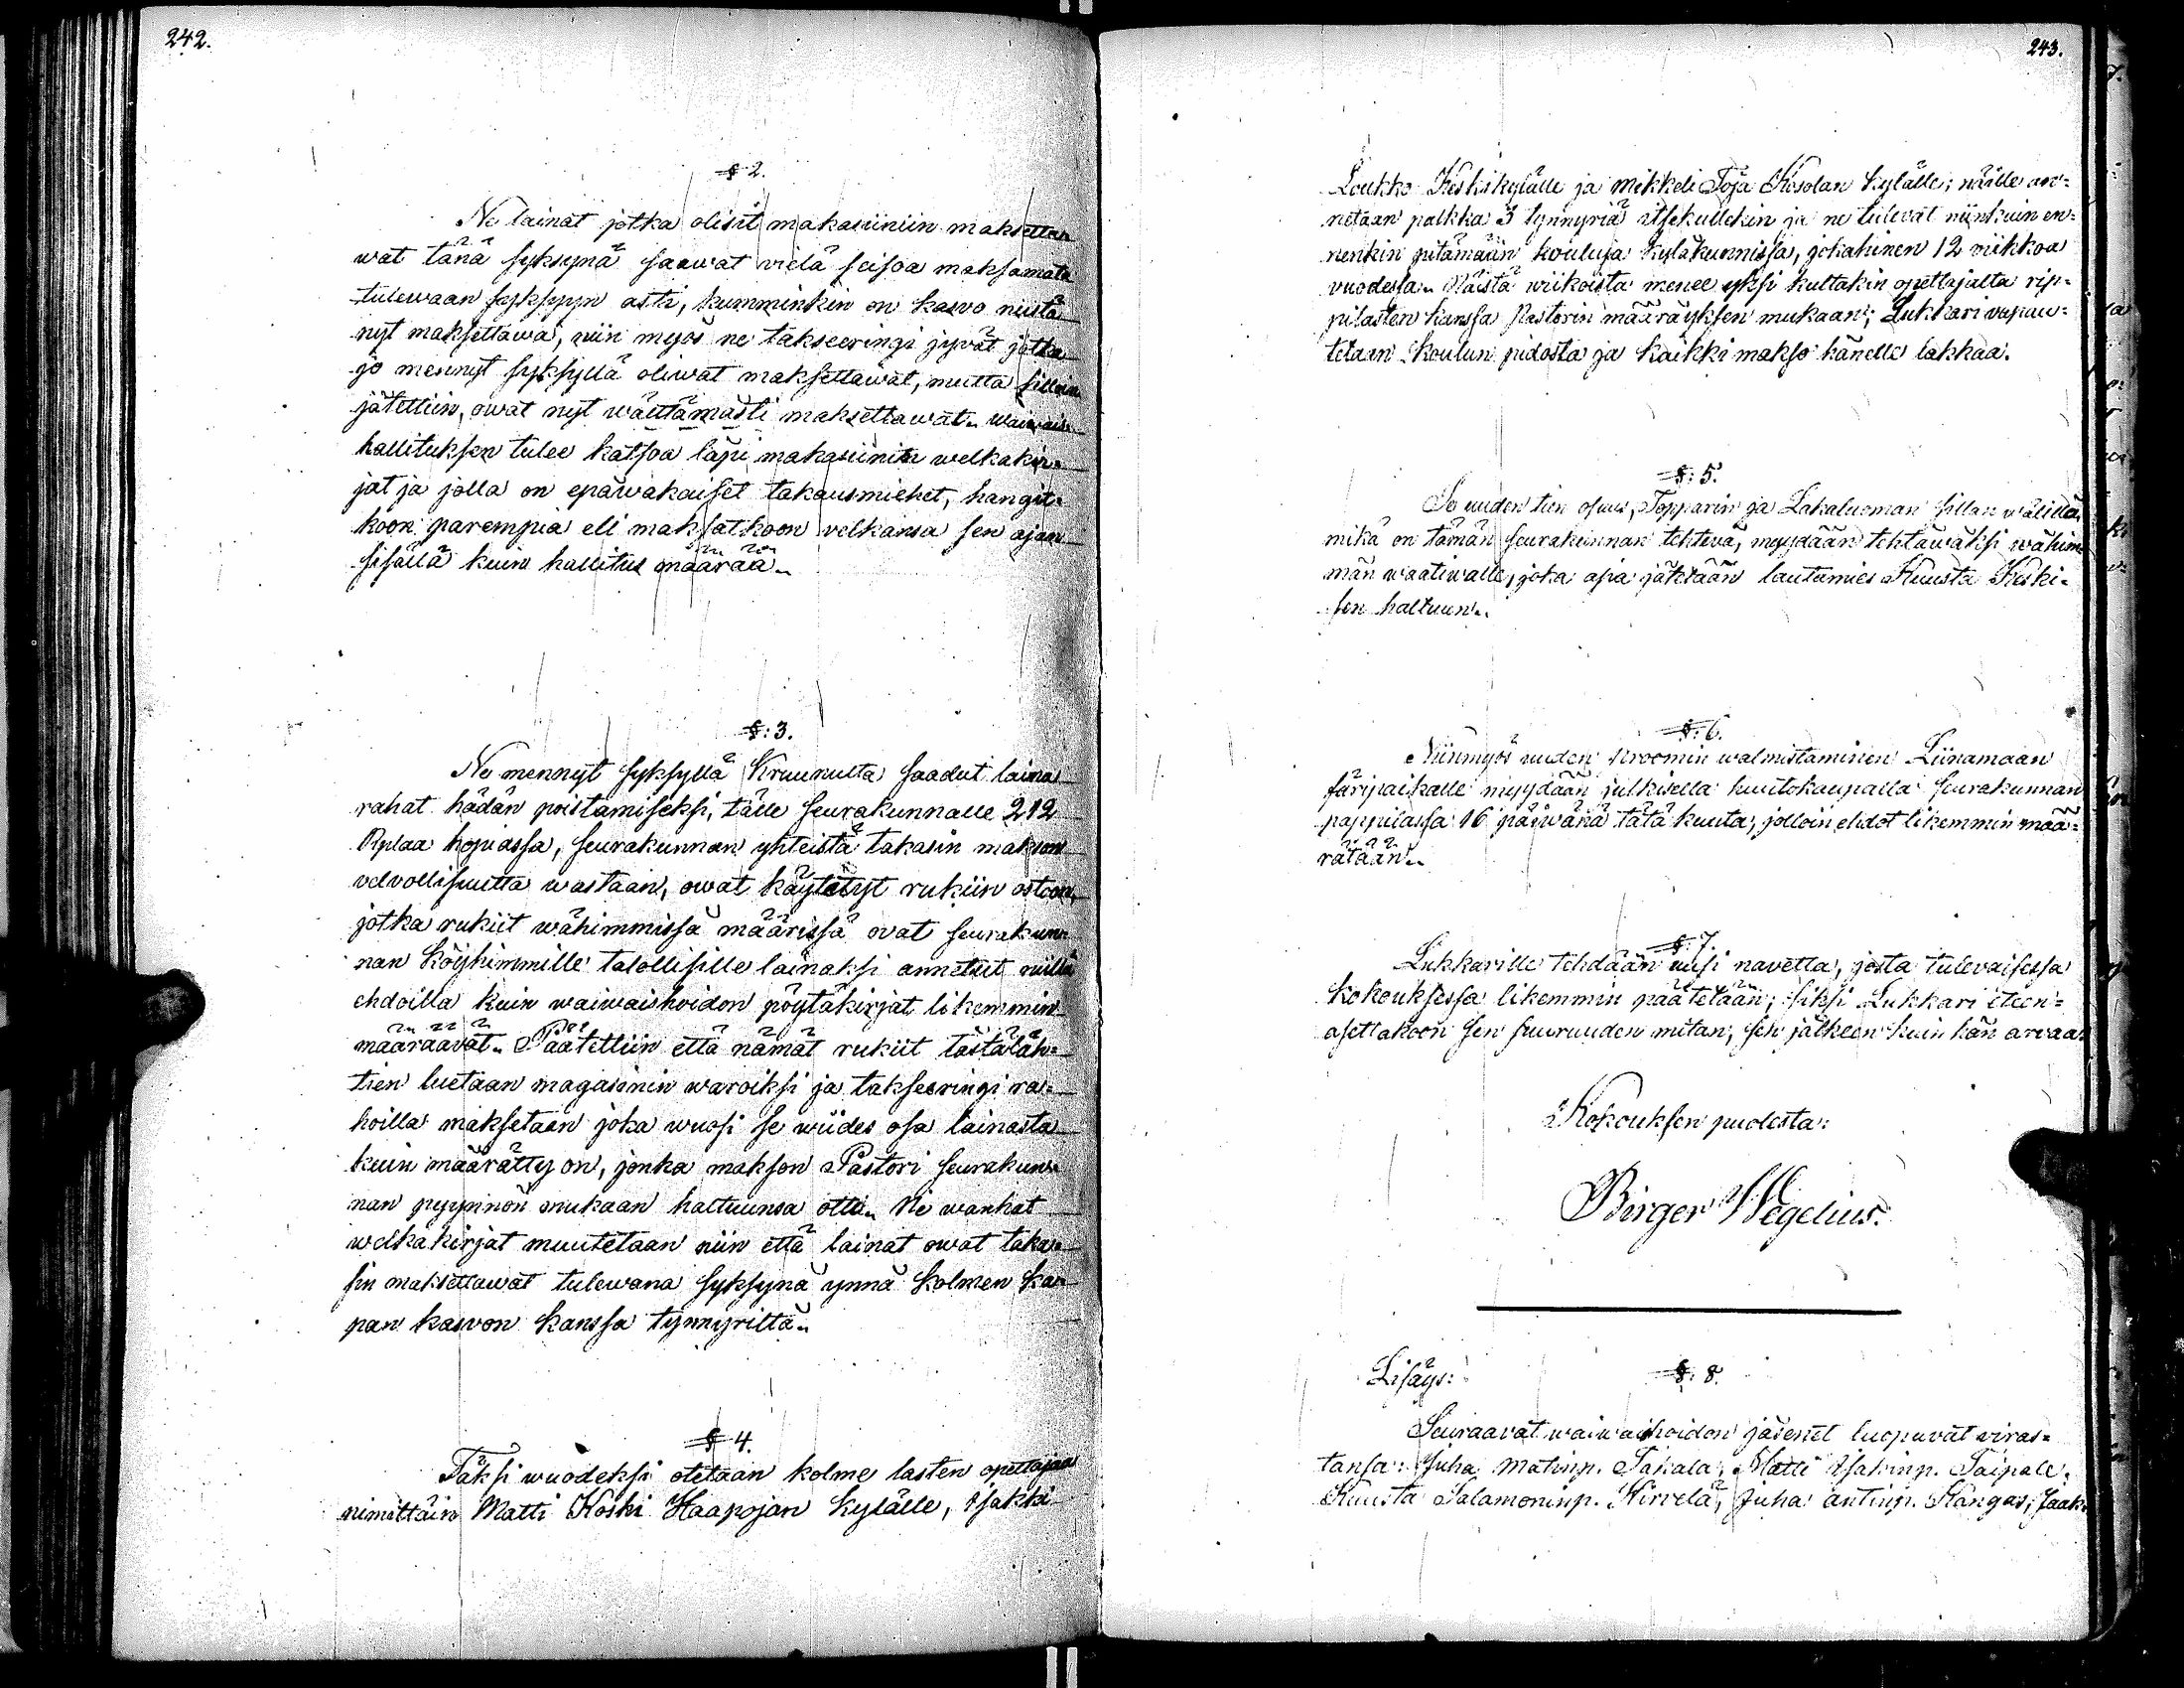 242.
§ 2.
Ne lainat jotka olisit makasiiniin maksettan
wat tänä syksynä saawat vielä seisoa maksamata
tulewaan syksyyn asti, kumminkin on kaswo niistä
nyt maksettawa, niin myös ne takseeringi jyvät jotka
jo mennyt syksyllä oliwat maksettawat, mutta silloin
jätettiin, owat nyt wälttämästi maksettawat. Waiwais-
hallituksen tulee katsoa läpi makasiinin welkakir=
jat ja jolla on epäwakaiset takausmiehet, hangit=
koon parempia eli maksatkoon velkansa sen ajan
sisällä kuin hallitus määrää.
§: 3.
Ne mennyt syksyllä Kruunulta saadut laina
rahat hädän poistamiseksi, tälle seurakunnalle 212
Rplaa hopiassa, seurakunnan yhteistä takasin makson
velvollisuutta wastaan, owat käytetyt rukiin ostoon,
jotka rukiit wähimmissä määrissä ovat seurakun=
nan köyhimmille talollisille lainaksi annetut niillä
ehdoilla kuin waiwaishoidon pöytäkirjat likemmin
määräävät. Päätettiin että nämät rukiit tästäläh=
tien luetaan magasinin waroiksi ja takseeringi ra=
hoilla maksetaan joka wuosi se wiides osa lainasta
kuin määrätty on, jonka makson Pastori seurakun=
nan pyynnön mukaan haltuunsa otti. Ne wanhat
welkakirjat muutetaan niin että lainat owat taka=
sin maksettawat tulewana syksynä ynnä kolmen ka=
pan kaswon kanssa tynnyriltä.
§ 4.
Täksi wuodeksi otetaan kolme lasten opettajaa
nimittäin Matti Koski Haapojan kylälle, Isakki
243.
Loukko Keskikylälle ja Mikkeli Toja Kosolan kylälle; näille an=
netaan palkka 3 tynnyriä itsekullekin ja ne tulevat niinkuin en=
nenkin pitämään kouluja kyläkunnissa, jokahinen 12 viikkoa
vuodessa. Näistä wiikoista menee yksi kultakin opettajalta rip=
pilasten kanssa Pastorin määräyksen mukaan; Lukkari vapau=
tetaan koulun pidosta ja kaikki makso hänelle lakkaa.
§: 5.
Se uuden tien osuus, Topparin ja Lahaluoman sillan wälillä,
mikä on tämän seurakunnan tehtevä, myydään tehtäwäksi wähim=
män waatiwalle, joka asia jätetään lautamies Kuusta Keski=
sen haltuun.
§: 6.
Niinmyös uuden kroomin walmistaminen Liinamaan
färipaikalle myydään julkisella huutokaupalla seurakunnan
pappilassa 16 päiwänä tätä kuuta, jolloin ehdot likemmin mää=
rätään.
§: 7.
Lukkarille tehdään uusi navetta, josta tulevaisessa
kokouksessa likemmin päätetään; siksi Lukkari eteen=
asettakoon sen suuruuden mitan, sen jälkeen kuin hän arvaa.
Kokouksen puolesta:
Birger Wegelius.
Lisäys:
§: 8.
Seuraavat waiwaishoidon jäsenet luopuvat viras=
tansa: Juha Matinp. Takala, Matti Isakinp. Taipale,
Kuusta Salamoninp. Hirvelä, Juha Antinp. Kangas, Jaak=